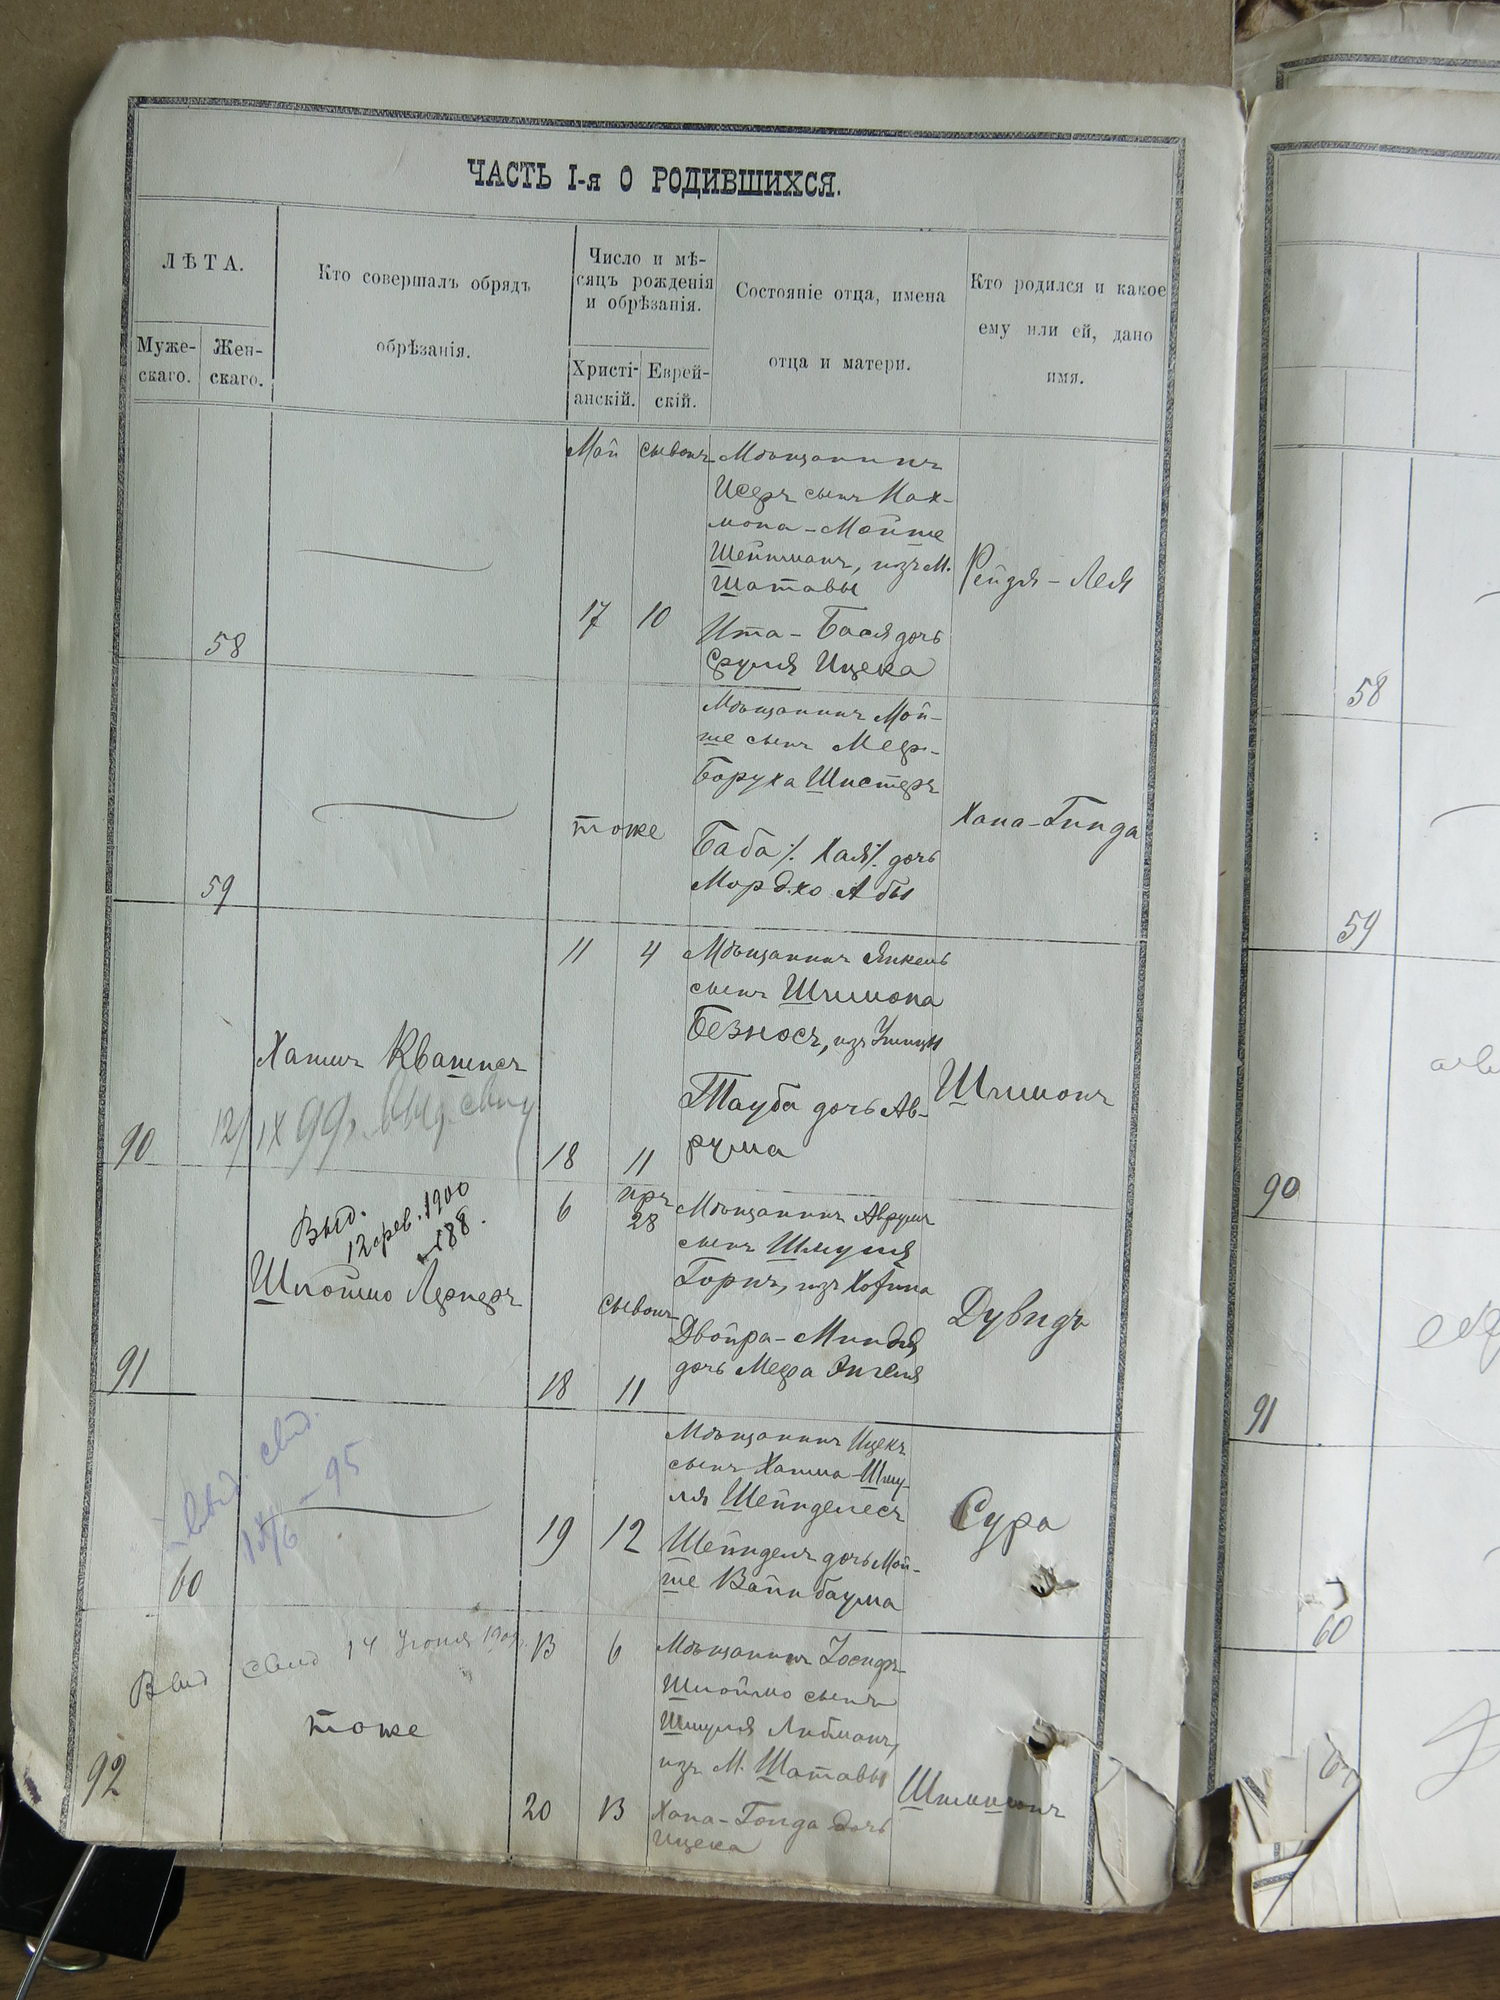 ЧАСТЬ I-я О РОДИВШИХСЯ.
ЛѢТА.
Муже-
скаго.
Жен-
скаго.
Кто совершалъ обрядъ
обрѣзанія.
Число и мѣ-
сяцъ рожденія
и обрѣзанія.
Христі-
анскій.
Еврей-
скій.
Состояніе отца, имена
отца и матери.
Кто родился и какое
ему или ей, дано
имя.
58
Май
17
сывонъ
10
Мѣщанинъ
Исеръ сынъ Нах-
мона-Мойше
Шейнманъ, изъ м.
Шатавы
Ита-Бася дочь
Сруля Ицека
Рейзя-Лея
59
тоже
Мѣщанинъ Мой-
ше сынъ Меер-
Боруха Шистеръ
Баба ⁒ Хая ⁒ дочь
Мордко Абы
Хана-Гинда
90
Хаимъ Квашнеръ
12/IX 99 г. выд. свид
11
18
4
11
Мѣщанинъ Янкель
сынъ Шлиомона
Безносъ, изъ Ушицы
Тауба дочь Ав-
рума
91
Выд.
12 фев. 1900
№ 188.
Шлоймо Лернеръ
6
18
28
сывонъ
11
Мѣщанинъ Аврумъ
сынъ Шмуля
Горнъ, изъ Хотина
Двойра-Миндля
дочь Меера Энгеля
Дувидъ
60
выд. свид.
95
19
12
Мѣщанинъ Ицекъ
сынъ Хаима-Шму-
ля Шейнделесъ
Шейндель дочь Мой-
ше Вайнбаума
Сура
92
Выд свид 14 Июня
тоже
13
20
6
13
Мѣщанинъ Іосифъ-
Шлоймо сынъ
Шмуля Либманъ,
изъ м. Шатавы
Хана-Гольда дочь
Ицека
58
59
90
91
60